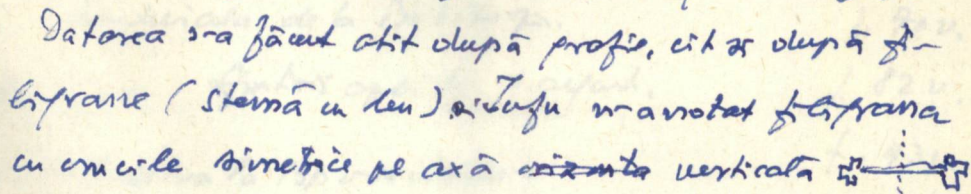 Datarea s-a făcut atît după grafie, cît și după fi-
ligrane (stemă cu leu) și Tufu n-a notat filigrana
cu crucile simetrice pe axă verticală